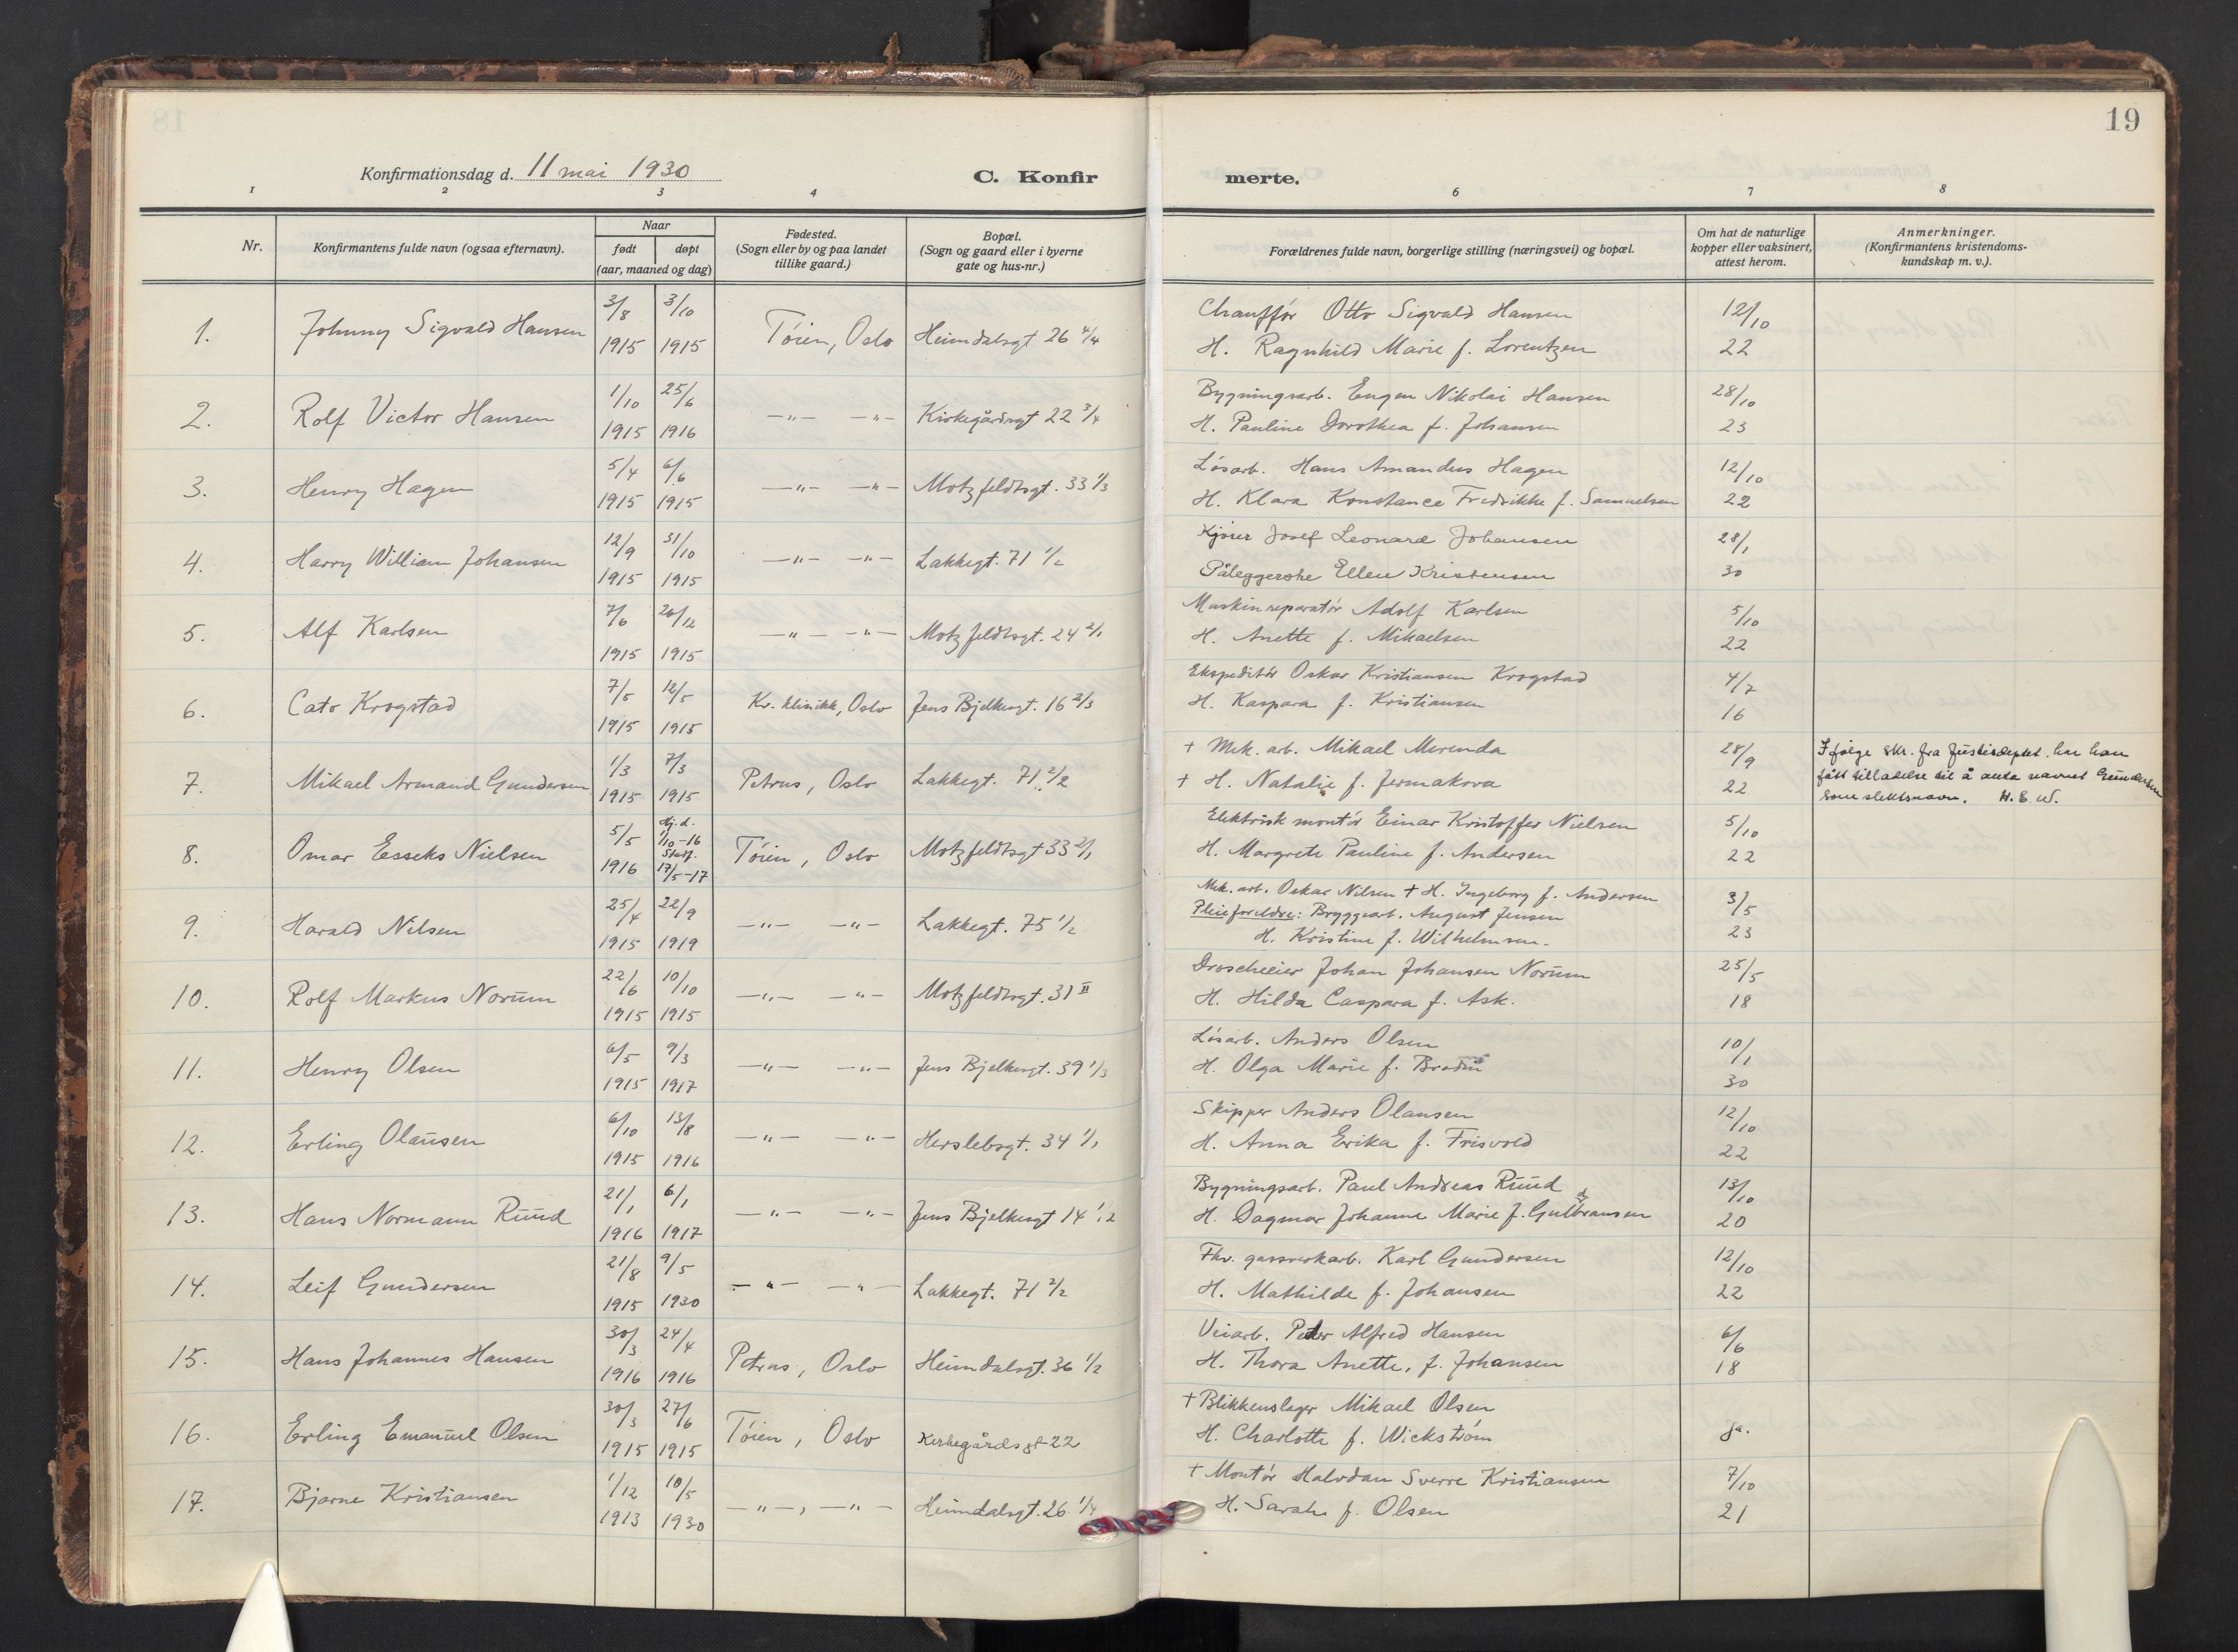 19
Konfirmationsdag d. 11 mai 1930
C. Konfirmerte.
1 2 3 4 6 7 8
Nr.
Konfirmantens fulde navn (ogsaa efternavn).
Naar
født døpt
(aar, maaned og dag)
Fødested.
(Sogn eller by og paa landet
tillike gaard.)
Bopæl.
(Sogn og gaard eller i byerne
gate og hus-nr.)
Forældrenes fulde navn, borgerlige stilling (næringsvei) og bopæl.
Om hat de naturlige
kopper eller vaksinert,
attest herom.
Anmerkninger.
(Konfirmantens kristendoms-
kundskap m. v.).
1. Johnny Sigvald Hansen 3/8 1915 3/10 1915 Tóien, Oslo Heimdalsgt 26 4/4
Chauffór Otto Sigvald Hansen 12/10
H. Ragnhild Marie f. Lorentzen 22
2. Rolf Victor Hansen 1/10 1915 25/6 1916 —"— —"— Kirkegårdsgt 22 3/4
Bygningsarb. Eugen Nikolai Hansen 28/10
H. Pauline Dorothea f. Johansen 23
3. Henry Hagen 5/4 1915 6/6 1915 —"— —"— Motzfeldtsgt. 33 1/3
Lósarb. Hans Amandus Hagen 12/10
H. Klara Konstance Fredrikke f. Samuelsen 22
4. Harry William Johansen 12/9 1915 31/10 1915 —"— —"— Lakkegt. 71 1/2
Kjórer Josef Leonard Johansen 28/1
Påleggerske Ellen Kristensen 30
5. Alf Karlsen 7/6 1915 26/12 1915 —"— —"— Motzfeldtsgt. 24 2/1
Maskinreparatór Adolf Karlsen 5/10
H. Anette f. Mikaelsen 22
6. Cato Krogstad 7/5 1915 12/5 1915 Kv. klinikk, Oslo Jens Bjelkesgt. 16 2/3
Ekspeditór Oskar Kristiansen Krogstad 4/7
H. Kaspara f. Kristiansen 16
7. Mikael Armand Gundersen 1/3 1915 7/3 1915 Petrus, Oslo Lakkegt. 71 2/2
+ Mek. arb. Mikael Merenda 28/9
+ H. Natalie f. Jermakova 22
Ifølge skr. fra Justisdeptet. har han
fått tilladelse til å anta navnet Gundersen
som slektsnavn. H. E. W.
8. Omar Esseks Nielsen 5/5 1916 Hj. d. 1/10-16 Stadf. 17/5-17 Tóien, Oslo Motzfeldtsgt 33 2/1
Elektrisk montór Einar Kristoffer Nielsen 5/10
H. Margrete Pauline f. Andersen 22
9. Harald Nilsen 25/4 1915 22/9 1919 —"— —"— Lakkegt. 75 1/2
Mek. arb. Oskar Nilsen + H. Ingeborg f. Andersen 3/5
Pleieforeldre: Bryggearb. August Jensen 23
H. Kristine f. Wilhelmsen.
10. Rolf Markus Norum 22/6 1915 10/10 1915 —"— —"— Motzfeldtsgt. 31 II
Droscheeier Johan Johansen Norum 25/5
H. Hilda Caspara f. Ask. 18
11. Henry Olsen 6/5 1915 9/3 1917 —"— —"— Jens Bjelkesgt. 39 1/3
Lósarb. Anders Olsen 10/1
H. Olga Marie f. Brodin 30
12. Erling Olausen 6/10 1915 13/8 1916 —"— —"— Herslebsgt. 34 1/1
Skipper Anders Olausen 12/10
H. Anna Erika f. Frisvold 22
13. Hans Normann Ruud 21/1 1916 6/1 1917 —"— —"— Jens Bjelkesgt 14 1/2
Bygningsarb. Paul Andreas Ruud 13/10
H. Dagmar Johanne Marie f. Gulbransen 20
14. Leif Gundersen 21/8 1915 9/5 1930 —"— —"— Lakkegt. 71 2/2
Fhv. gassverkarb. Karl Gundersen 12/10
H. Mathilde f. Johansen 22
15. Hans Johannes Hansen 30/3 1916 24/4 1916 Petrus, Oslo Heimdalsgt. 36 1/2
Veiarb. Peder Alfred Hansen 6/6
H. Thora Anette, f. Johansen 18
16. Erling Emanuel Olsen 30/3 1915 27/6 1915 Tóien, Oslo Kirkegårdsgt 22
+ Blikkenslager Mikael Olsen
H. Charlotte f. Wickstróm ja.
17. Bjarne Kristiansen 1/12 1913 10/5 1930 —"—, —"— Heimdalsgt. 26 1/4
+ Montór Halvdan Sverre Kristiansen 7/10
H. Sarah f. Olsen 21